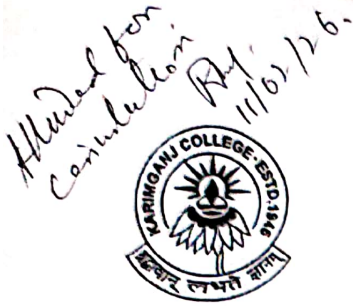 Allowed for
circulation.
11/02/26.
KARIMGANJ COLLEGE·ESTD.1946
श्रद्धावान् लभते ज्ञानम्